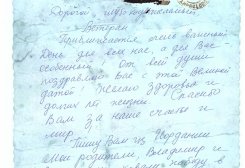 Дорогой, многоуважаемый
Ветеран!
Приближается очень важный
День для всех нас, а для Вас
особенный. От всей души
поздравляю Вас с этой Великой
датой. Желаю здоровья и
долгих лет жизни. Спасибо
Вам за наше счастье и
мир.
Пишу Вам из Иордании
Мои родители, Владимир и